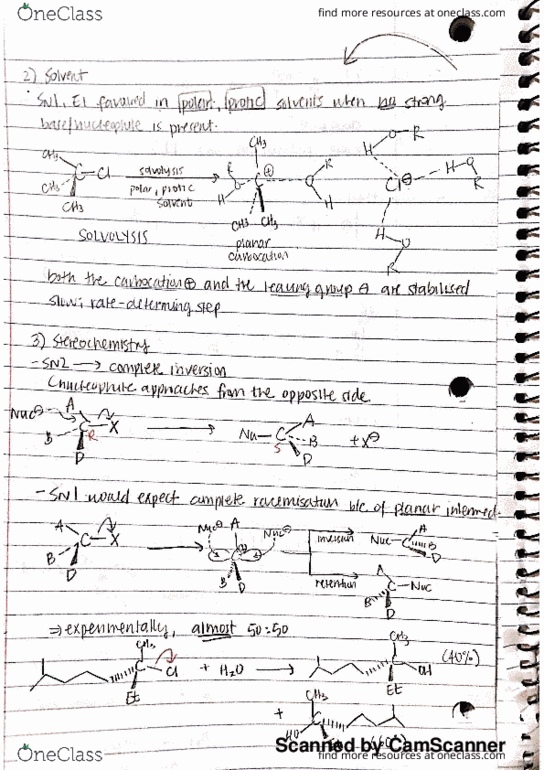 OneClass
find more resources at oneclass.com
2) Solvent
· SN1, E1 favoured in polar, protic solvents when no strong
base/nucleophile is present.
CH3
CH3 C Cl solvolysis R ⊕ R H O R
CH3 polar, protic O C O Cl⊖ H O
CH3 solvent H H R
CH3 CH3 H O
SOLVOLYSIS planar R
carbocation
both the carbocation ⊕ and the leaving group ⊖ are stabilised
slow; rate-determining step
3) Stereochemistry
- SN2 → complete inversion
(nucleophile approaches from the opposite side
Nuc⊖ A A
C X Nu C B + X⊖
B R S
D D
- SN1 would expect complete racemisation b/c of planar intermed.
A Nuc⊖ A Nuc⊖ inversion Nuc C A
C X C ⊕ B
B B D
D D retention A
C Nuc
B
D
⇒ experimentally, almost 50:50
CH3 CH3
C Cl + H2O → C OH (40%)
Et Et
+ CH3
C
HO (60%)
Scanned by CamScanner
OneClass
find more resources at oneclass.com